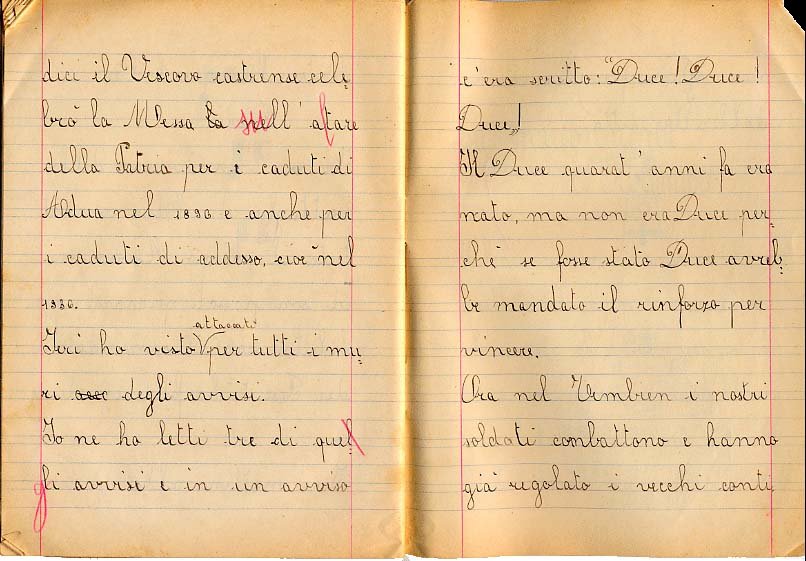 dici il Vescovo castrense cele-
brò la Messa nell' altare
della Patria per i caduti di
Adua nel 1896 e anche per
i caduti di addesso, cioè nel
1936.
attaccati
Ieri ho visto per tutti i mu-
ri degli avvisi.
Io ne ho letti tre di que-
gli avvisi e in un avviso
c'era scritto: "Duce! Duce!
Duce"!
Il Duce quarat'anni fa era
nato, ma non era Duce per-
chè se fosse stato Duce avreb-
be mandato il rinforzo per
vincere.
Ora nel Tembien i nostri
soldati combattono e hanno
già regolato i vecchi conti.